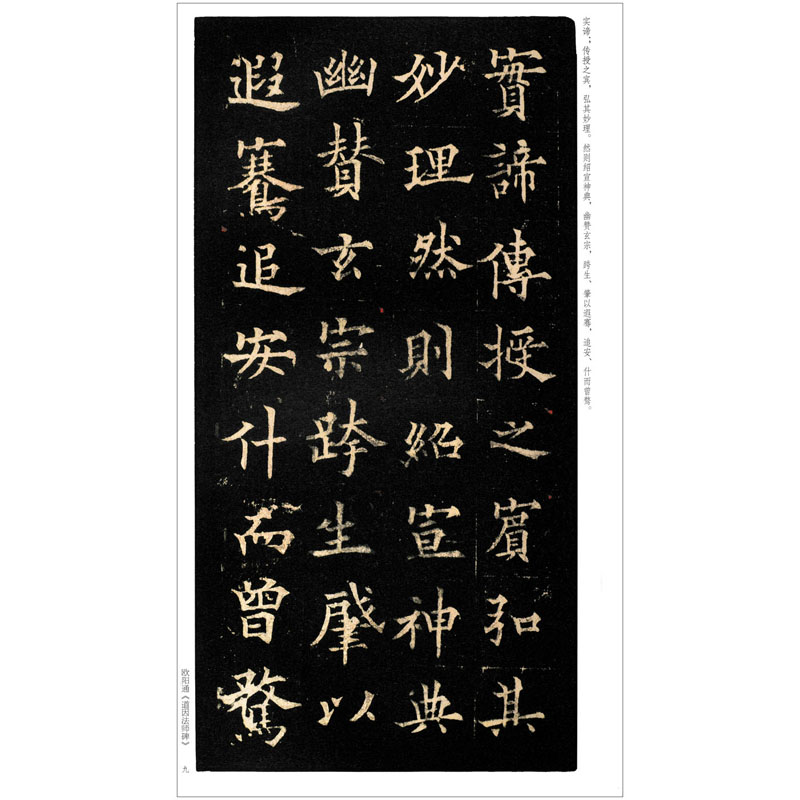 实谛；传授之宾，弘其妙理。然则绍宣神典，幽赞玄宗，跨生、肇以遐骞，追安、什而曾骛。
實諦傳授之賓弘其
妙理然則紹宣神典
幽贊玄宗跨生肇以
遐騫追安什而曾騖
欧阳通《道因法师碑》
九